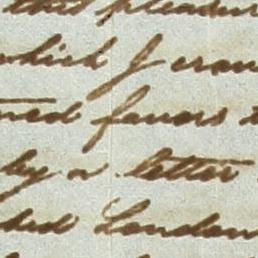 that pleasure
which I crave
favors
by a letter
London